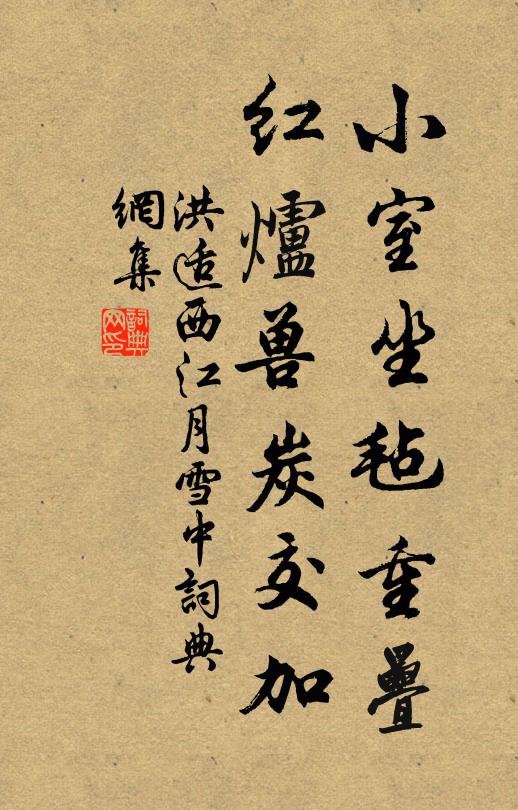 小室坐毡重疊
红爐兽炭交加
洪适西江月雪中詞典
網集
詞典
网印